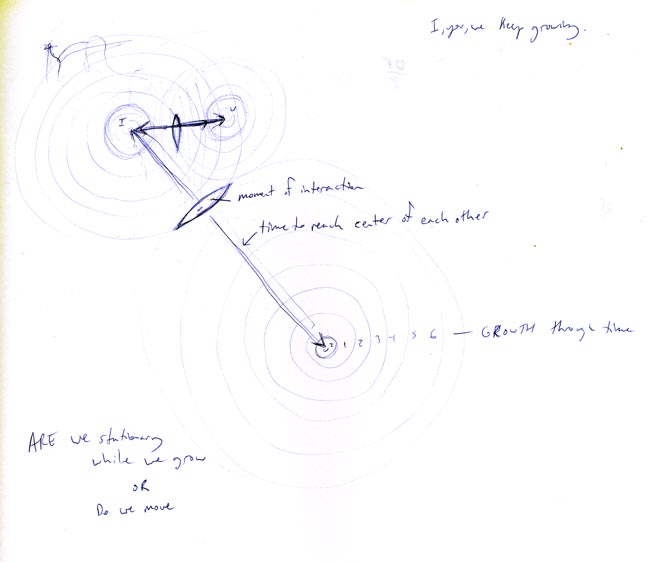 I, you, we keep growing.
I
U
moment of interaction
time to reach center of each other
U2 1 2 3 4 5 6 — GROWTH through time
ARE we stationary
while we grow
OR
Do we move